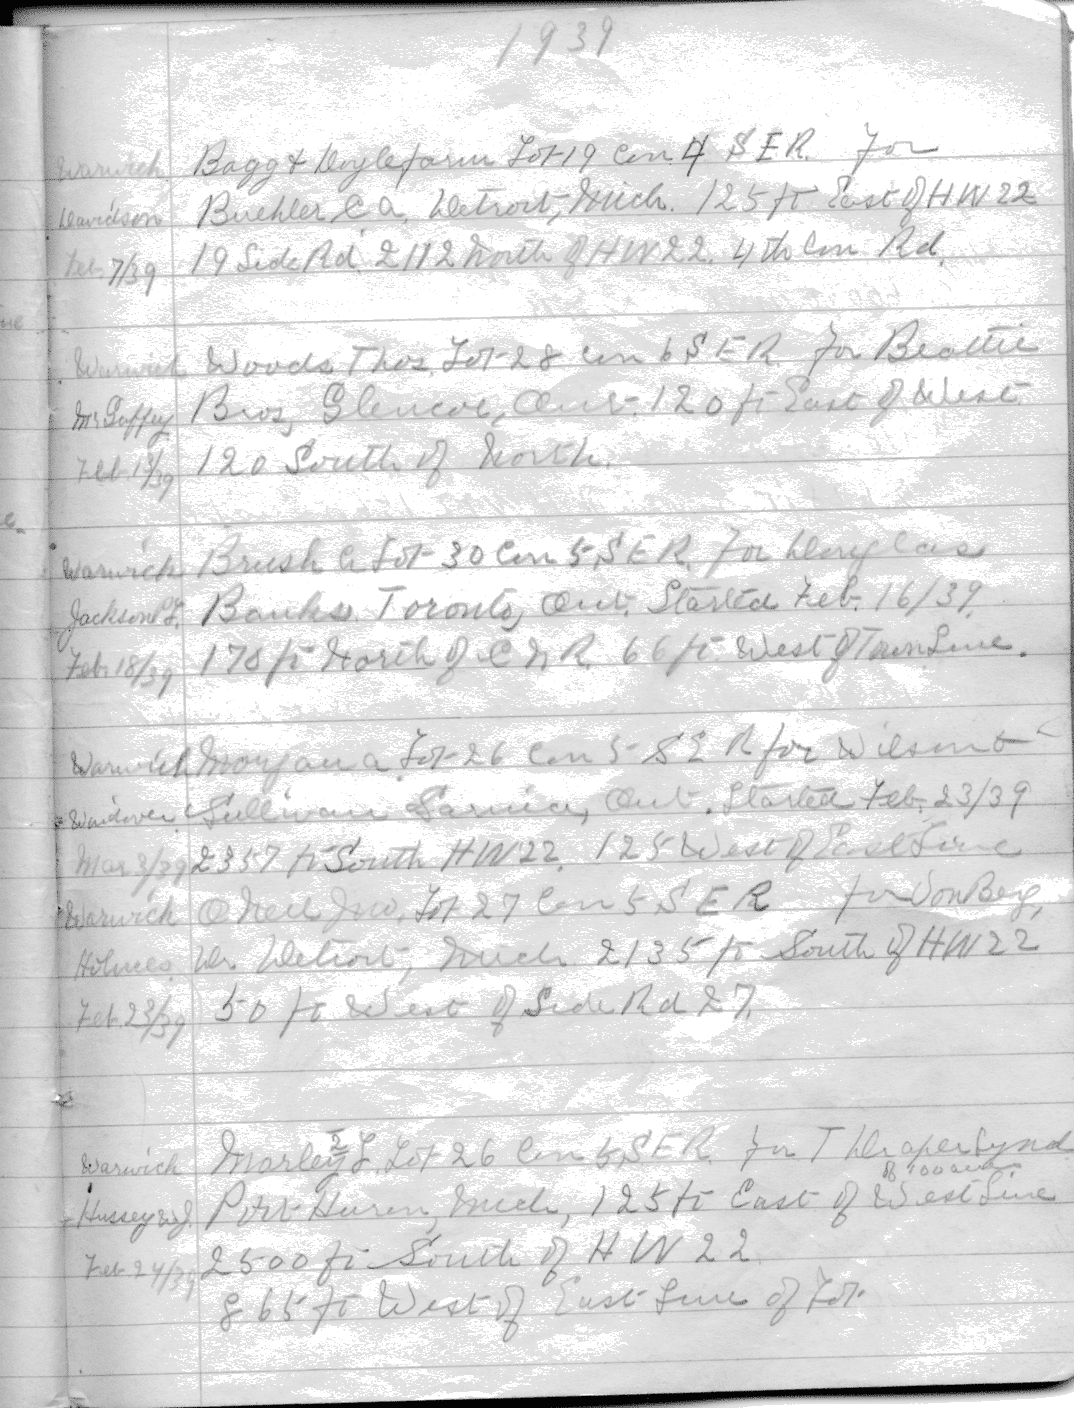 1939
Warwick Bagg & Doyle farm Lot 19 Con 4 S E R. For
Davidson Buehler C A, Detroit, Mich. 125 ft East of HW 22
Feb 7/39 19 Side Rd. 2112 North of HW 22. 4th Con Rd.
Warwick Woods Thos. Lot 28 Con 6 S E R. For Beattie
McGaffey Bros, Glencoe, Ont. 120 ft East of West
Feb. 13/39 120 South of North.
Warwick Brush C Lot 30 Con 5 S E R. For Douglas
Jackson Banks. Toronto, Ont. Started Feb. 16/39.
Feb. 18/39 170 ft North of C N R. 66 ft West of Town Line.
Warwick Morgan a. Lot 26 Con 5 S E R for Wilson &
Windover Sullivan Sarnia, Ont. Started Feb. 23/39
Mar 3/39 2357 ft South HW 22. 125 West of East Line
Warwick O Neil Jno. Lot 27 Con 5 S E R for VonBerg,
Holmes. Dr. Detroit, Mich 2135 ft South of HW 22
Feb. 23/39 50 ft West of Side Rd 27.
Warwick Morley L. Lot 26 Con 5 S E R. For T Draper Synd.
of 100 acre
Hussey W J. Port Huron, Mich, 125 ft East of West Line
Feb. 24/39 2500 ft South of HW 22
& 65 ft West of East Line of Lot